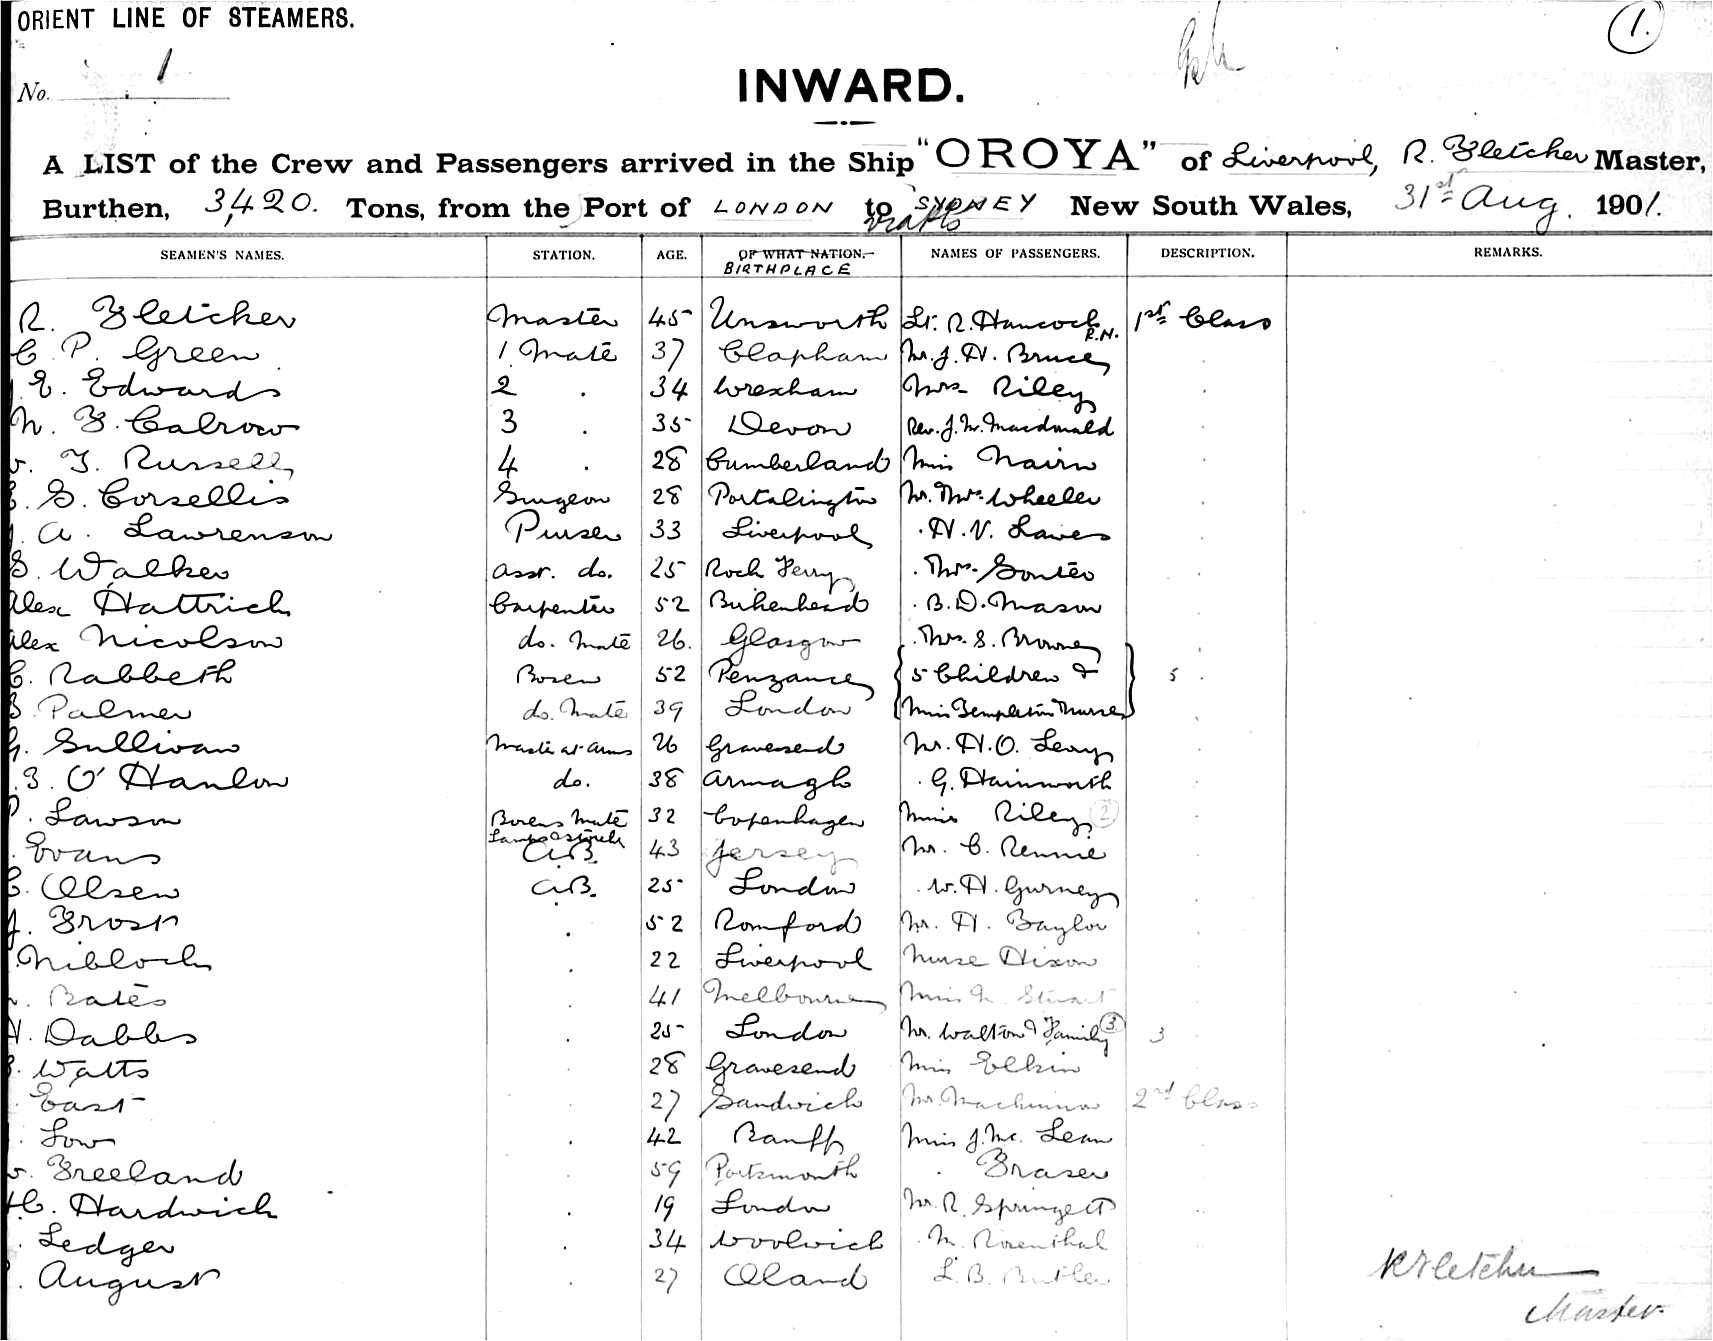 ORIENT LINE OF STEAMERS.
1.
No. 1
INWARD.
A LIST of the Crew and Passengers arrived in the Ship "OROYA" of Liverpool, R. Fletcher Master,
Burthen, 3,420. Tons, from the Port of LONDON to SYDNEY New South Wales, 31st Aug. 1901.
SEAMEN'S NAMES. STATION. AGE. OF WHAT NATION. NAMES OF PASSENGERS. DESCRIPTION. REMARKS.
BIRTHPLACE
R. Fletcher Master 45 Unsworth Lt. R. Hancock R.N. 1st Class
C. P. Green 1 Mate 37 Clapham Mr. J. H. Bruce
J. E. Edwards 2 . 34 Wrexham Mrs Riley
F. Calrow 3 . 35 Devon Rev. J. M. Macdonald
Russell 4 . 28 Cumberland Miss Nairn
G. Corsellis Surgeon 28 Portarlington Mr. Mrs Wheeler
A. Lawrenson Purser 33 Liverpool . H. V. Lawes
G. Walker Asst. do. 25 Rock Ferry . Mrs. Souter
Alex Hattrich Carpenter 52 Birkenhead . B. D. Mason
Alex Nicolson do. Mate 26. Glasgow . Mrs. S. Browne
C. Rabbeth Bosen 52 Penzance 5 Children & 5 .
Palmer do. Mate 39 London Miss Templeton Nurse
G. Sullivan Master at Arms 26 Gravesend Mr. H. O. Levy
O'Hanlon do. 38 Armagh . G. Hainworth
Lawson Bosens Mate 32 Copenhagen Miss Riley 2
Evans Lamps & A.B. 43 Jersey Mr. C. Rennie
C. Olsen A.B. 25 London . W. H. Gurney
J. Frost . 52 Romford Mr. H. Baylor
Niblock . 22 Liverpool Nurse Dixon
Bates . 41 Melbourne Miss M. Stewart
H. Dabbs . 25 London Mr. Walton & Family 3 3
Watts . 28 Gravesend Miss Elkin
East . 27 Sandwich Mr. Mackinnon 2nd Class
Low . 42 Banff Miss J. Mc. Lean
Freeland 59 Portsmouth . Fraser
H. C. Hardwich . 19 London Mr. R. Springett
Ledger . 34 Woolwich . M. Rosenthal
August . 27 Oland L. B. Butler
R Fletcher
Master